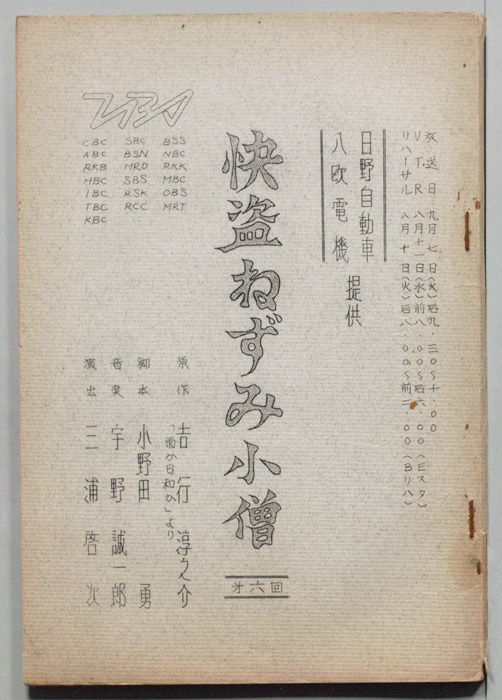 放送日 九月七日(火)后九.三〇〜十.〇〇
VTR 八月十一日(水)前八.〇〇〜后六.〇〇(Eスタ)
リハーサル 八月十日(火)后八.〇〇〜前一.〇〇(Bリハ)
日野自動車
八欧電機
提供
快盗ねずみ小僧
才六回
原作 吉行淳之介
「雨か日和か」より
脚本 小野田 勇
音楽 宇野誠一郎
演出 三浦啓次
TBS
CBC SBC BSS
ABC BSN NBC
RKB MRO RKK
HBC SBS MBC
IBC RSK OBS
TBC RCC MRT
KBC